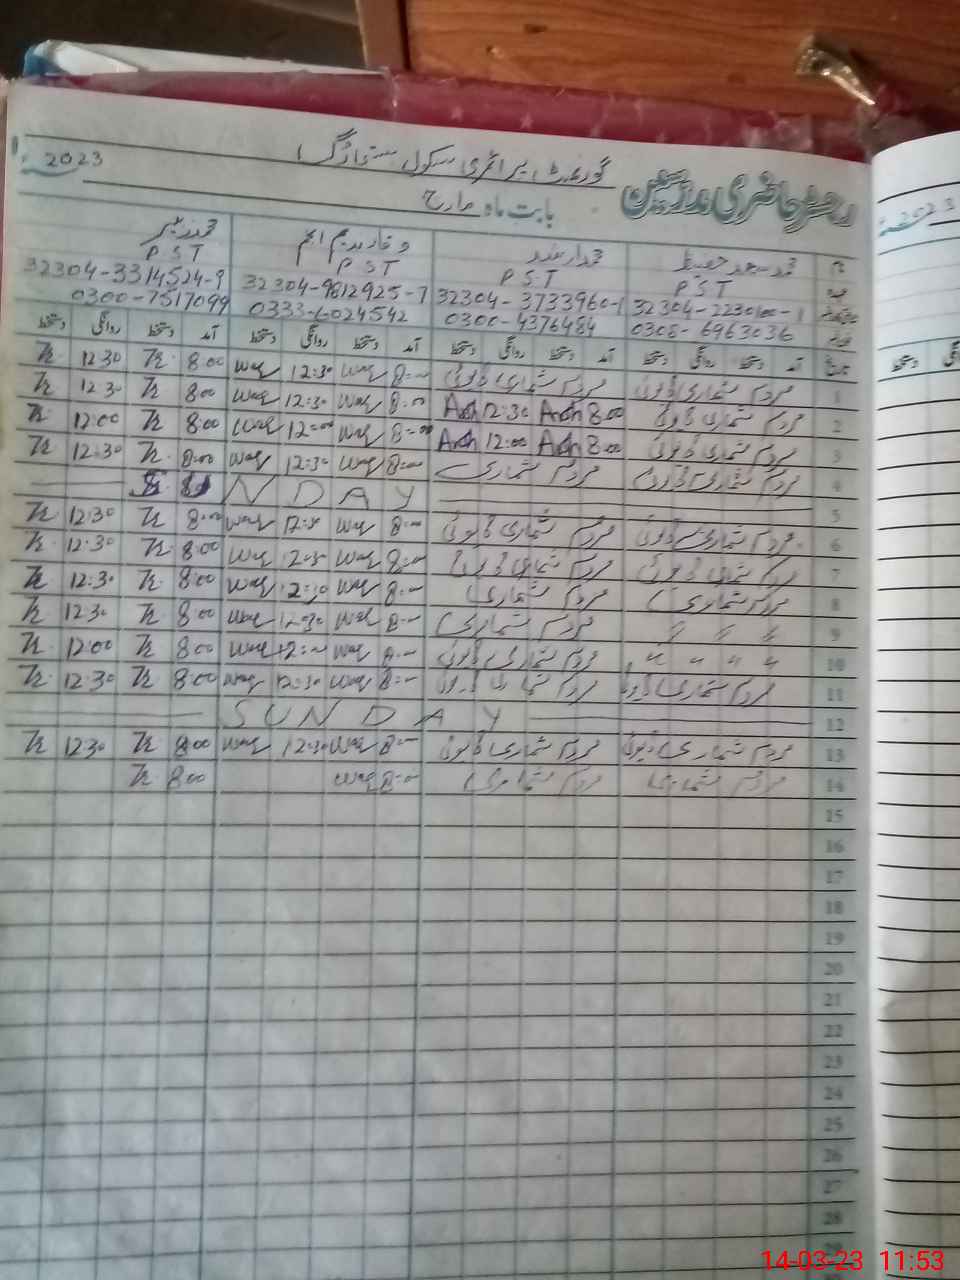 رجسٹر حاضری مدرسین گورنمنٹ پرائمری سکول 2023
بابت ماہ مارچ
نام محمد سعد حفیظ محمد ارشد وقار ندیم انجم محمد زبیر
عہدہ PST PST PST PST
32304-2230100-1 32304-3733960-1 32304-9812925-7 32304-3314524-9
0308-6963036 0300-4376484 0333-6024542 0300-7517099
تاریخ آمد دستخط روانگی دستخط آمد دستخط روانگی دستخط آمد دستخط روانگی دستخط آمد دستخط روانگی دستخط
1 مردم شماری ڈیوٹی مردم شماری ڈیوٹی 8:00 Waq 12:30 Waq 8:00 12:30
2 مردم شماری ڈیوٹی 8:00 Arsh 12:30 Arsh 8:00 Waq 12:30 Waq 8:00 12:30
3 مردم شماری ڈیوٹی 8:00 Arsh 12:00 Arsh 8:00 Waq 12:00 Waq 8:00 12:00
4 مردم شماری مردم شماری 8:00 Waq 12:30 Waq 8:00 12:30
5 N D A Y
6 مردم شماری ڈیوٹی مردم شماری ڈیوٹی 8:00 Waq 12:30 Waq 8:00 12:30
7 مردم شماری ڈیوٹی مردم شماری ڈیوٹی 8:00 Waq 12:30 Waq 8:00 12:30
8 مردم شماری مردم شماری 8:00 Waq 12:30 Waq 8:00 12:30
9 〃 〃 〃 مردم شماری 8:00 Waq 12:30 Waq 8:00 12:30
10 〃 〃 〃 〃 مردم شماری ڈیوٹی 8:00 Waq 12:00 Waq 8:00 12:00
11 مردم شماری ڈیوٹی مردم شماری ڈیوٹی 8:00 Waq 12:30 Waq 8:00 12:30
12 S U N D A Y
13 مردم شماری ڈیوٹی مردم شماری ڈیوٹی 8:00 Waq 12:30 Waq 8:00 12:30
14 مردم شماری مردم شماری 8:00 Waq 8:00
15
16
17
18
19
20
21
22
23
24
25
26
27
28
29
2023
14-03-23 11:53